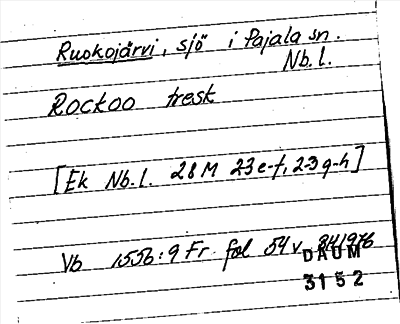 Ruokojärvi, sjö i Pajala sn.
Nb.l.
Rocktoo tresk
[Ek Nb.l. 28 M 23 e-f, 2-3 g-h]
Vb 1556:9 Fr. fol 54 v. 1976
DAUM
3152